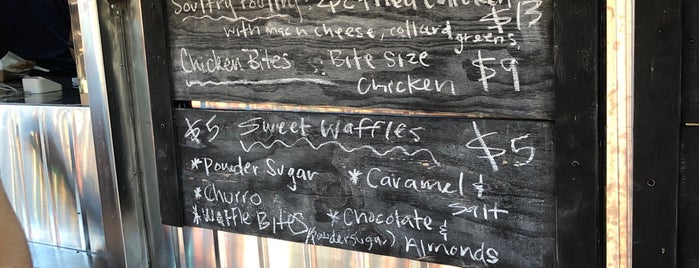 Soultry Poultry: 2pc fried chicken
with mac n cheese, collard greens $13
Chicken Bites : Bite size
Chicken $9
$5 Sweet Waffles $5
*Powder Sugar *Caramel &
Salt
*Churro
*Waffle Bites *Chocolate &
(powdersugar) Almonds